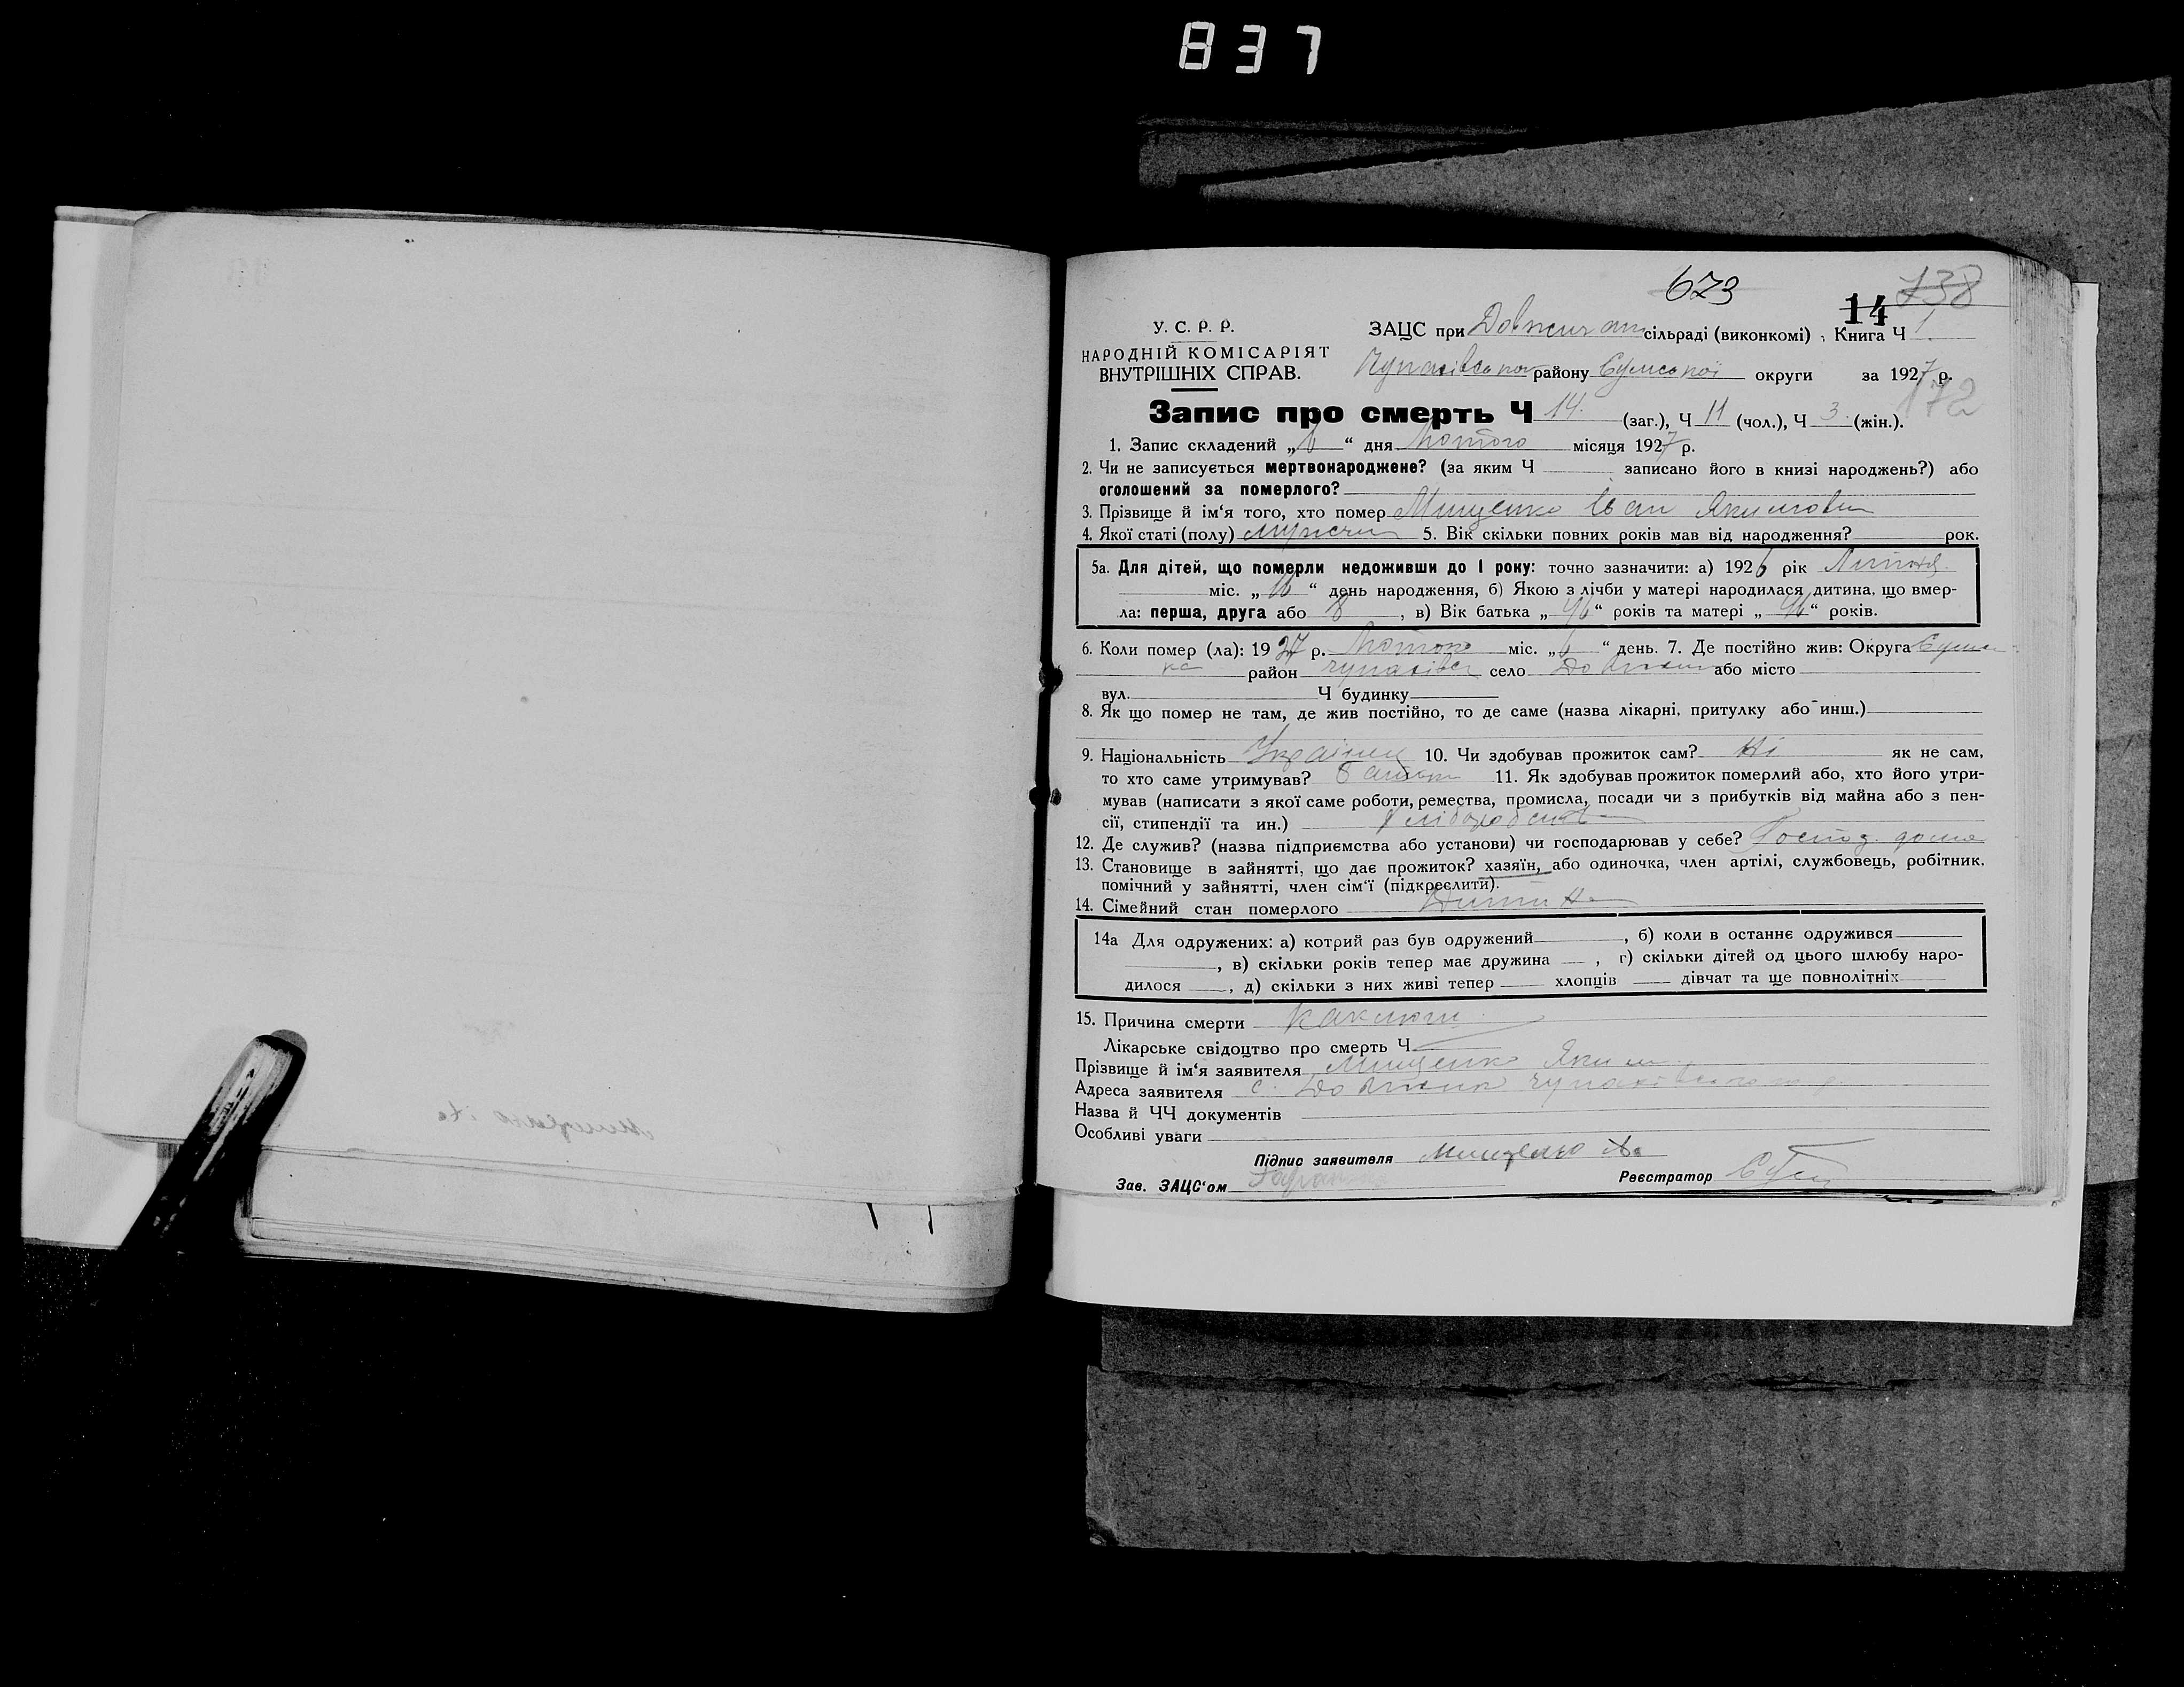 837
673
14 738
У. С. Р. Р.
НАРОДНІЙ КОМІСАРІЯТ
ВНУТРІШНІХ СПРАВ.
ЗАЦС при сільраді (виконкомі) , Книга Ч 1
району Сумської округи за 1927 р.
172
Запис про смерть Ч 14. (заг.), Ч 11 (чол.), Ч 3. (жін.).
1. Запис складений „6“ дня Лютого місяця 1927 р.
2. Чи не записується мертвонароджене? (за яким Ч записано його в книзі народжень?) або
оголошений за померлого?
3. Прізвище й ім‘я того, хто помер Мищенко Іван Якимович
4. Якої статі (полу) 5. Вік скільки повних років мав від народження? рок.
5а. Для дітей, що померли недоживши до 1 року: точно зазначити: а) 1926 рік Липня
міс. „16“ день народження, б) Якою з лічби у матері народилася дитина, що вмер-
ла: перша, друга або 8, в) Вік батька „46“ років та матері „46“ років.
6. Коли помер (ла): 1927 р. Лютого міс. „6“ день. 7. Де постійно жив: Округа Сумсь-
ка район село Довжик або місто
вул. Ч будинку
8. Як що помер не там, де жив постійно, то де саме (назва лікарні, притулку або инш.)
9. Національність Українец 10. Чи здобував прожиток сам? Ні як не сам,
то хто саме утримував? Батько 11. Як здобував прожиток померлий або, хто його утри-
мував (написати з якої саме роботи, ремества, промисла, посади чи з прибутків від майна або з пен-
сії, стипендії та ин.) Хліборобство
12. Де служив? (назва підприємства або установи) чи господарював у себе? Господ. дома
13. Становище в зайнятті, що дає прожиток? хазяїн, або одиночка, член артілі, службовець, робітник,
помічний у зайнятті, член сім‘ї (підкреслити).
14. Сімейний стан померлого Дитина
14а Для одружених: а) котрий раз був одружений , б) коли в останнє одружився
, в) скільки років тепер має дружина , г) скільки дітей од цього шлюбу наро-
дилося , д) скільки з них живі тепер хлопців дівчат та ще повнолітніх
15. Причина смерти Каклюш
Лікарське свідоцтво про смерть Ч
Прізвище й ім‘я заявителя Мищенко Яким
Адреса заявителя с. Довжик
Назва й ЧЧ документів
Особливі уваги
Підпис заявителя Мищенко
Зав. ЗАЦС‘ом Реєстратор